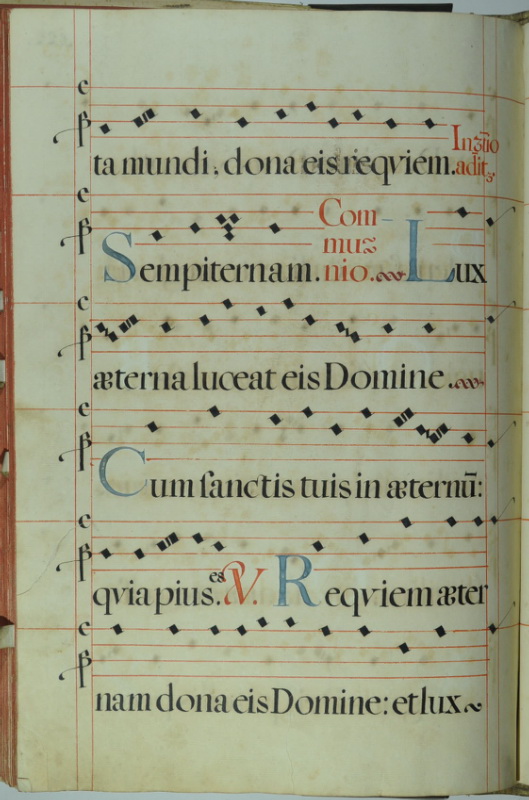 ta mundi: dona eis reqviem. In 3.tio
adit.
Sempiternam. Com=
mu=
nio. Lux
æterna luceat eis Domine.
Cum ſanctis tuis in æternū:
qvia pius. es V. Reqviem æter
nam dona eis Domine: et lux